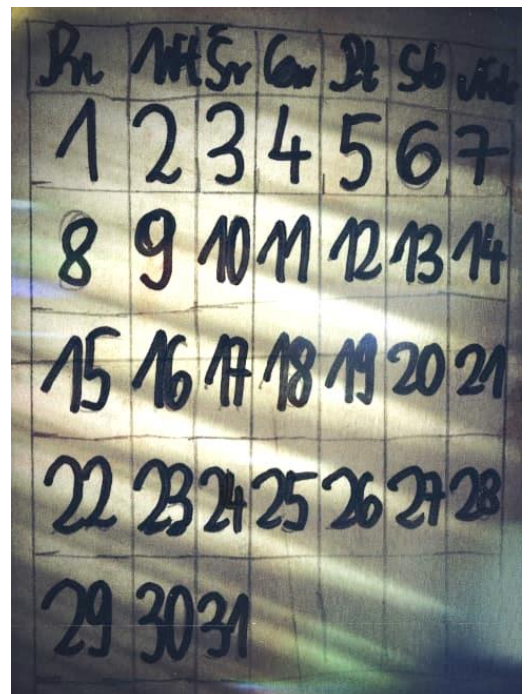 Pn Wt Śr Czw Pt Sb Ndz
1 2 3 4 5 6 7
8 9 10 11 12 13 14
15 16 17 18 19 20 21
22 23 24 25 26 27 28
29 30 31